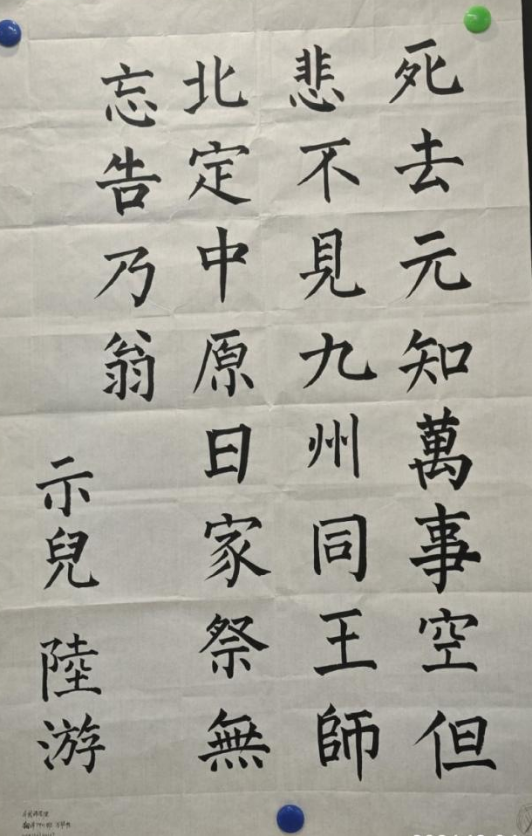 死去元知萬事空但
悲不見九州同王師
北定中原日家祭無
忘告乃翁
示兒 陸游